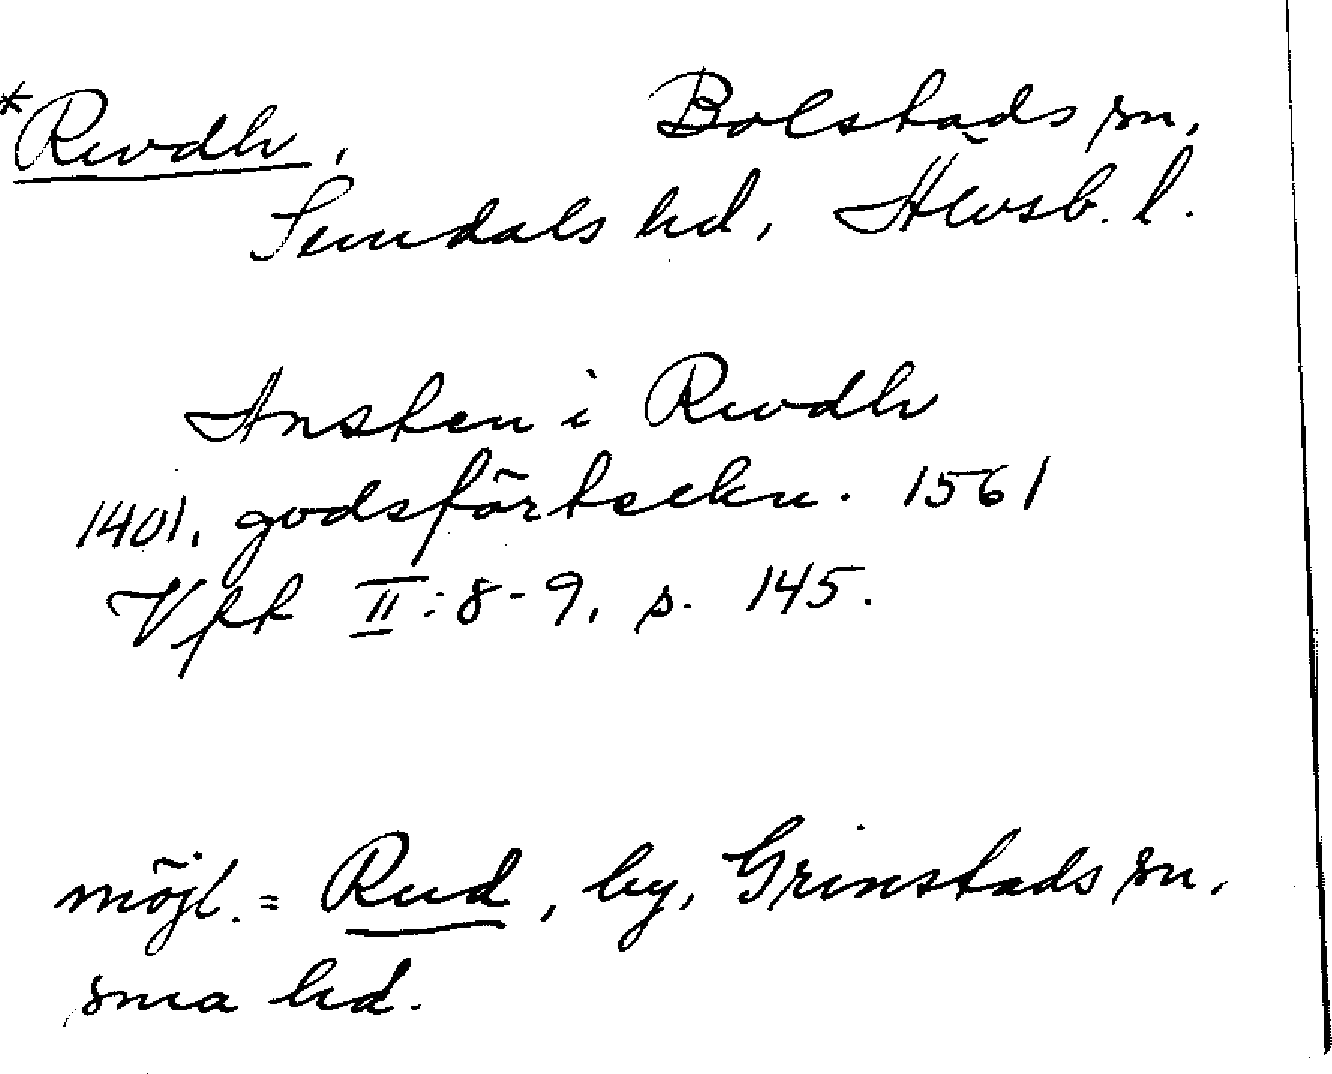 *Rwdh, Bolstads sn,
Sundals hd, Älvsb. l.
Ansten i Rwdh
1401. godsförteckn. 1561
Vfk II:8-9, s. 145.
möjl. = Rud, by, Grinstads sn,
sma hd.